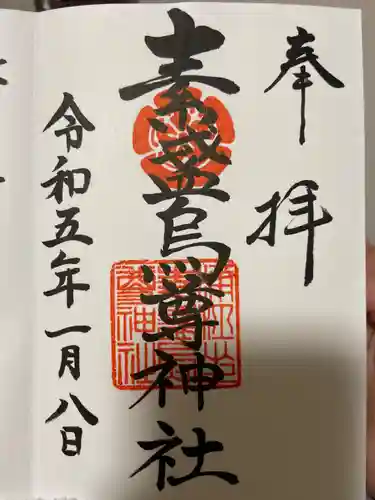 奉拝
素盞烏尊神社
令和五年一月八日